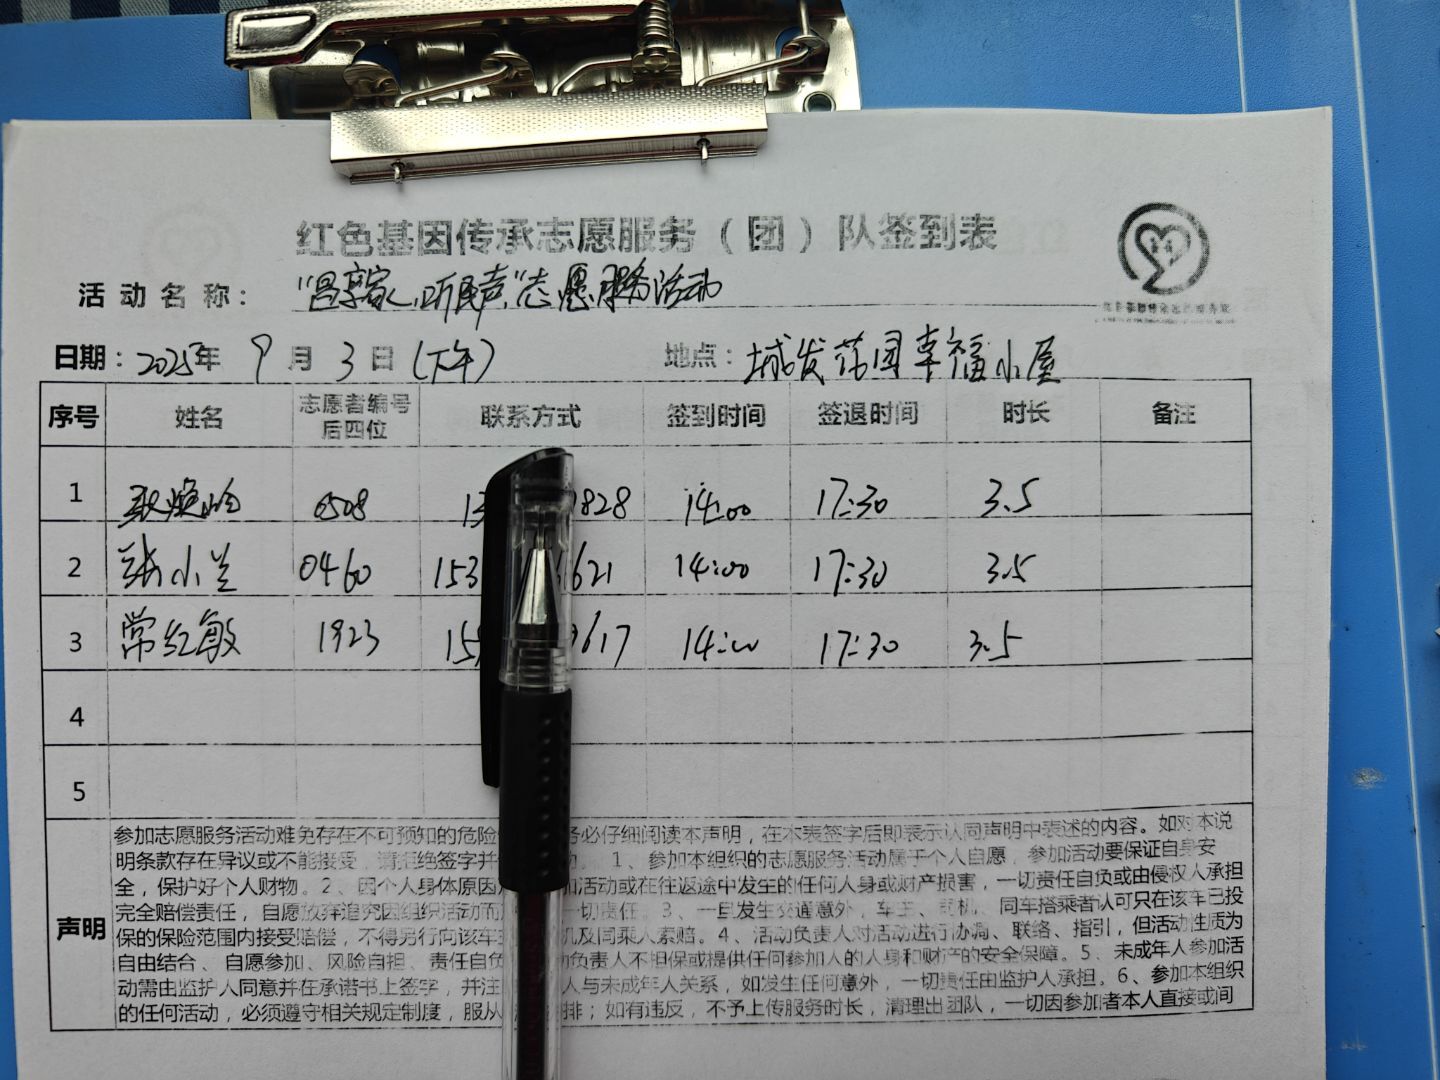 红色基因传承志愿服务（团）队签到表
活动名称： "昌享家、听民声"志愿服务活动
日期：2025年 9月 3日（下午） 地点：城发花园幸福小屋
序号 姓名 志愿者编号后四位 联系方式 签到时间 签退时间 时长 备注
1 0508 13 1828 14:00 17:30 3.5
2 张小兰 0460 153 1621 14:00 17:30 3.5
3 常红敏 1923 15 617 14:00 17:30 3.5
4
5
声明
参加志愿服务活动难免存在不可预知的危险 务必仔细阅读本声明，在本表签字后即表示认同声明中表述的内容。如对本说
明条款存在异议或不能接受，请拒绝签字并 。1、参加本组织的志愿服务活动属于个人自愿，参加活动要保证自身安
全，保护好个人财物。2、因个人身体原因 加活动或在往返途中发生的任何人身或财产损害，一切责任自负或由侵权人承担
完全赔偿责任，自愿放弃追究因组织活动而 一切责任。3、一旦发生交通意外，车主、司机、同车搭乘者认可只在该车已投
保的保险范围内接受赔偿，不得另行向该车主 机及同乘人索赔。4、活动负责人对活动进行协调、联络、指引，但活动性质为
自由结合、自愿参加、风险自担、责任自负 动负责人不担保或提供任何参加人的人身和财产的安全保障。5、未成年人参加活
动需由监护人同意并在承诺书上签字，并注 人与未成年人关系，如发生任何意外，一切责任由监护人承担。6、参加本组织
的任何活动，必须遵守相关规定制度，服从 排；如有违反，不予上传服务时长，清理出团队，一切因参加者本人直接或间